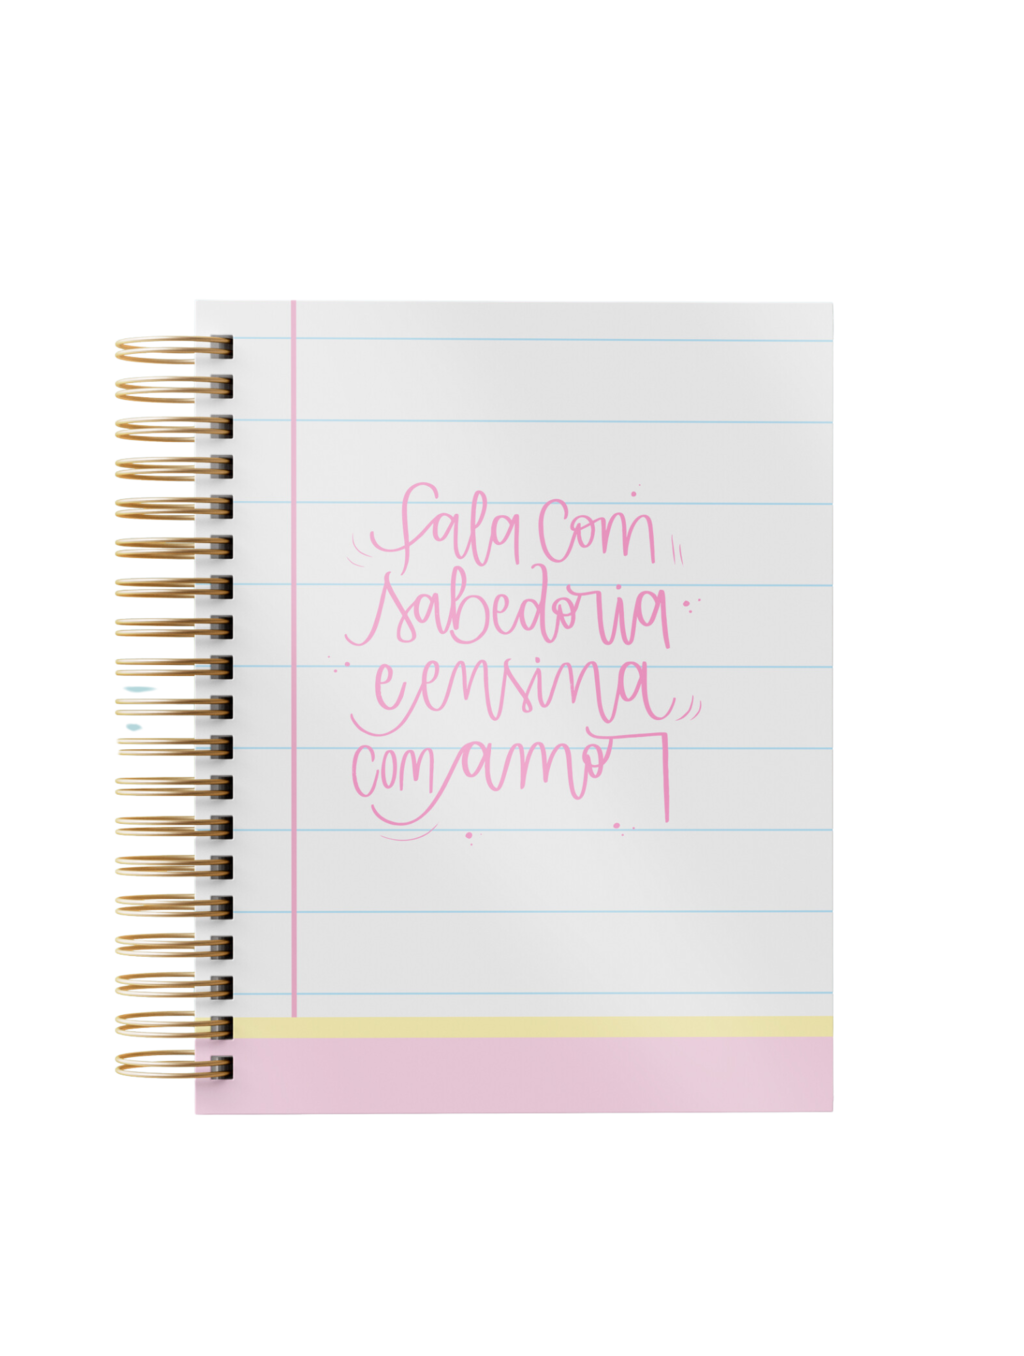 fala com
sabedoria
e ensina
com amor